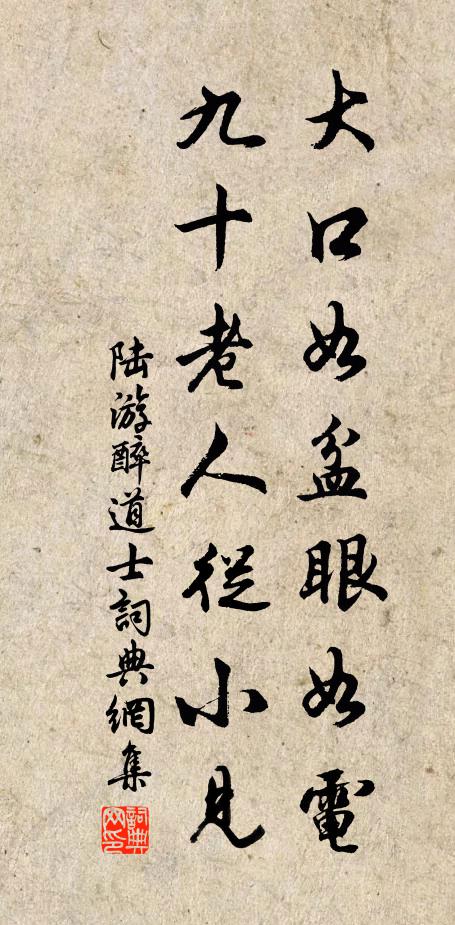 大口如盆眼如電
九十老人從小見
陆游醉道士詞典網集
詞典網印